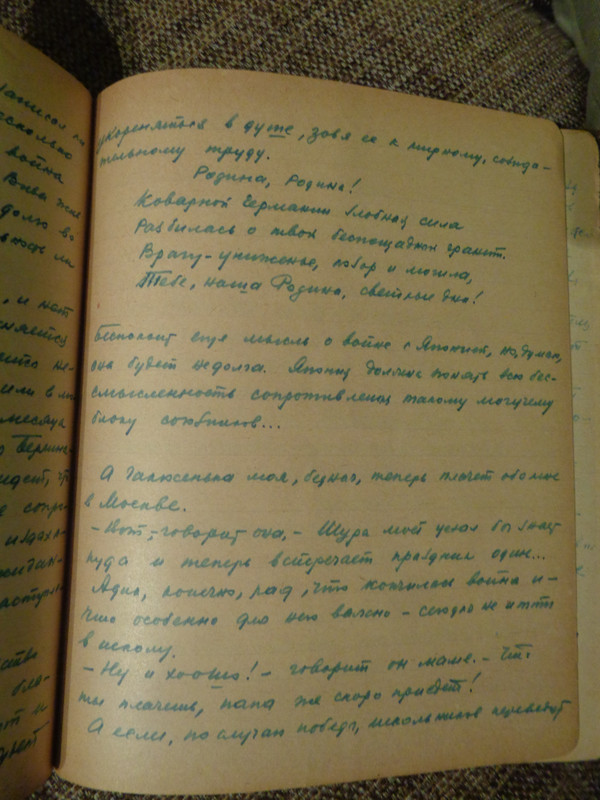 Написал
несколько
война
долго
и нет
месяца
и
укореняться в душе, зовя ее к мирному, созида-
тельному труду.
Родина, Родина!
Коварной Германии злобная сила
Разбилась о твой беспощадный гранит.
Врагу - униженье, позор и могила,
Тебе, наша Родина, светлые дни!
Беспокоит еще мысль о войне с Японией, но, думаю,
она будет недолга. Япония должна понять всю бес-
смысленность сопротивления такому могучему
блоку союзников...
А Галюсенька моя, бедная, теперь плачет обо мне
в Москве.
- Вот, - говорит она, - Шура мой уехал бог знает
куда и теперь встречает праздник один...
Адик, конечно, рад, что кончилась война и -
что особенно для него важно - сегодня не идти
в школу.
- Ну и хорошо! - говорит он маме. - Что
ты плачешь, папа же скоро приедет!
А если, по случаю победы, школьников переведут